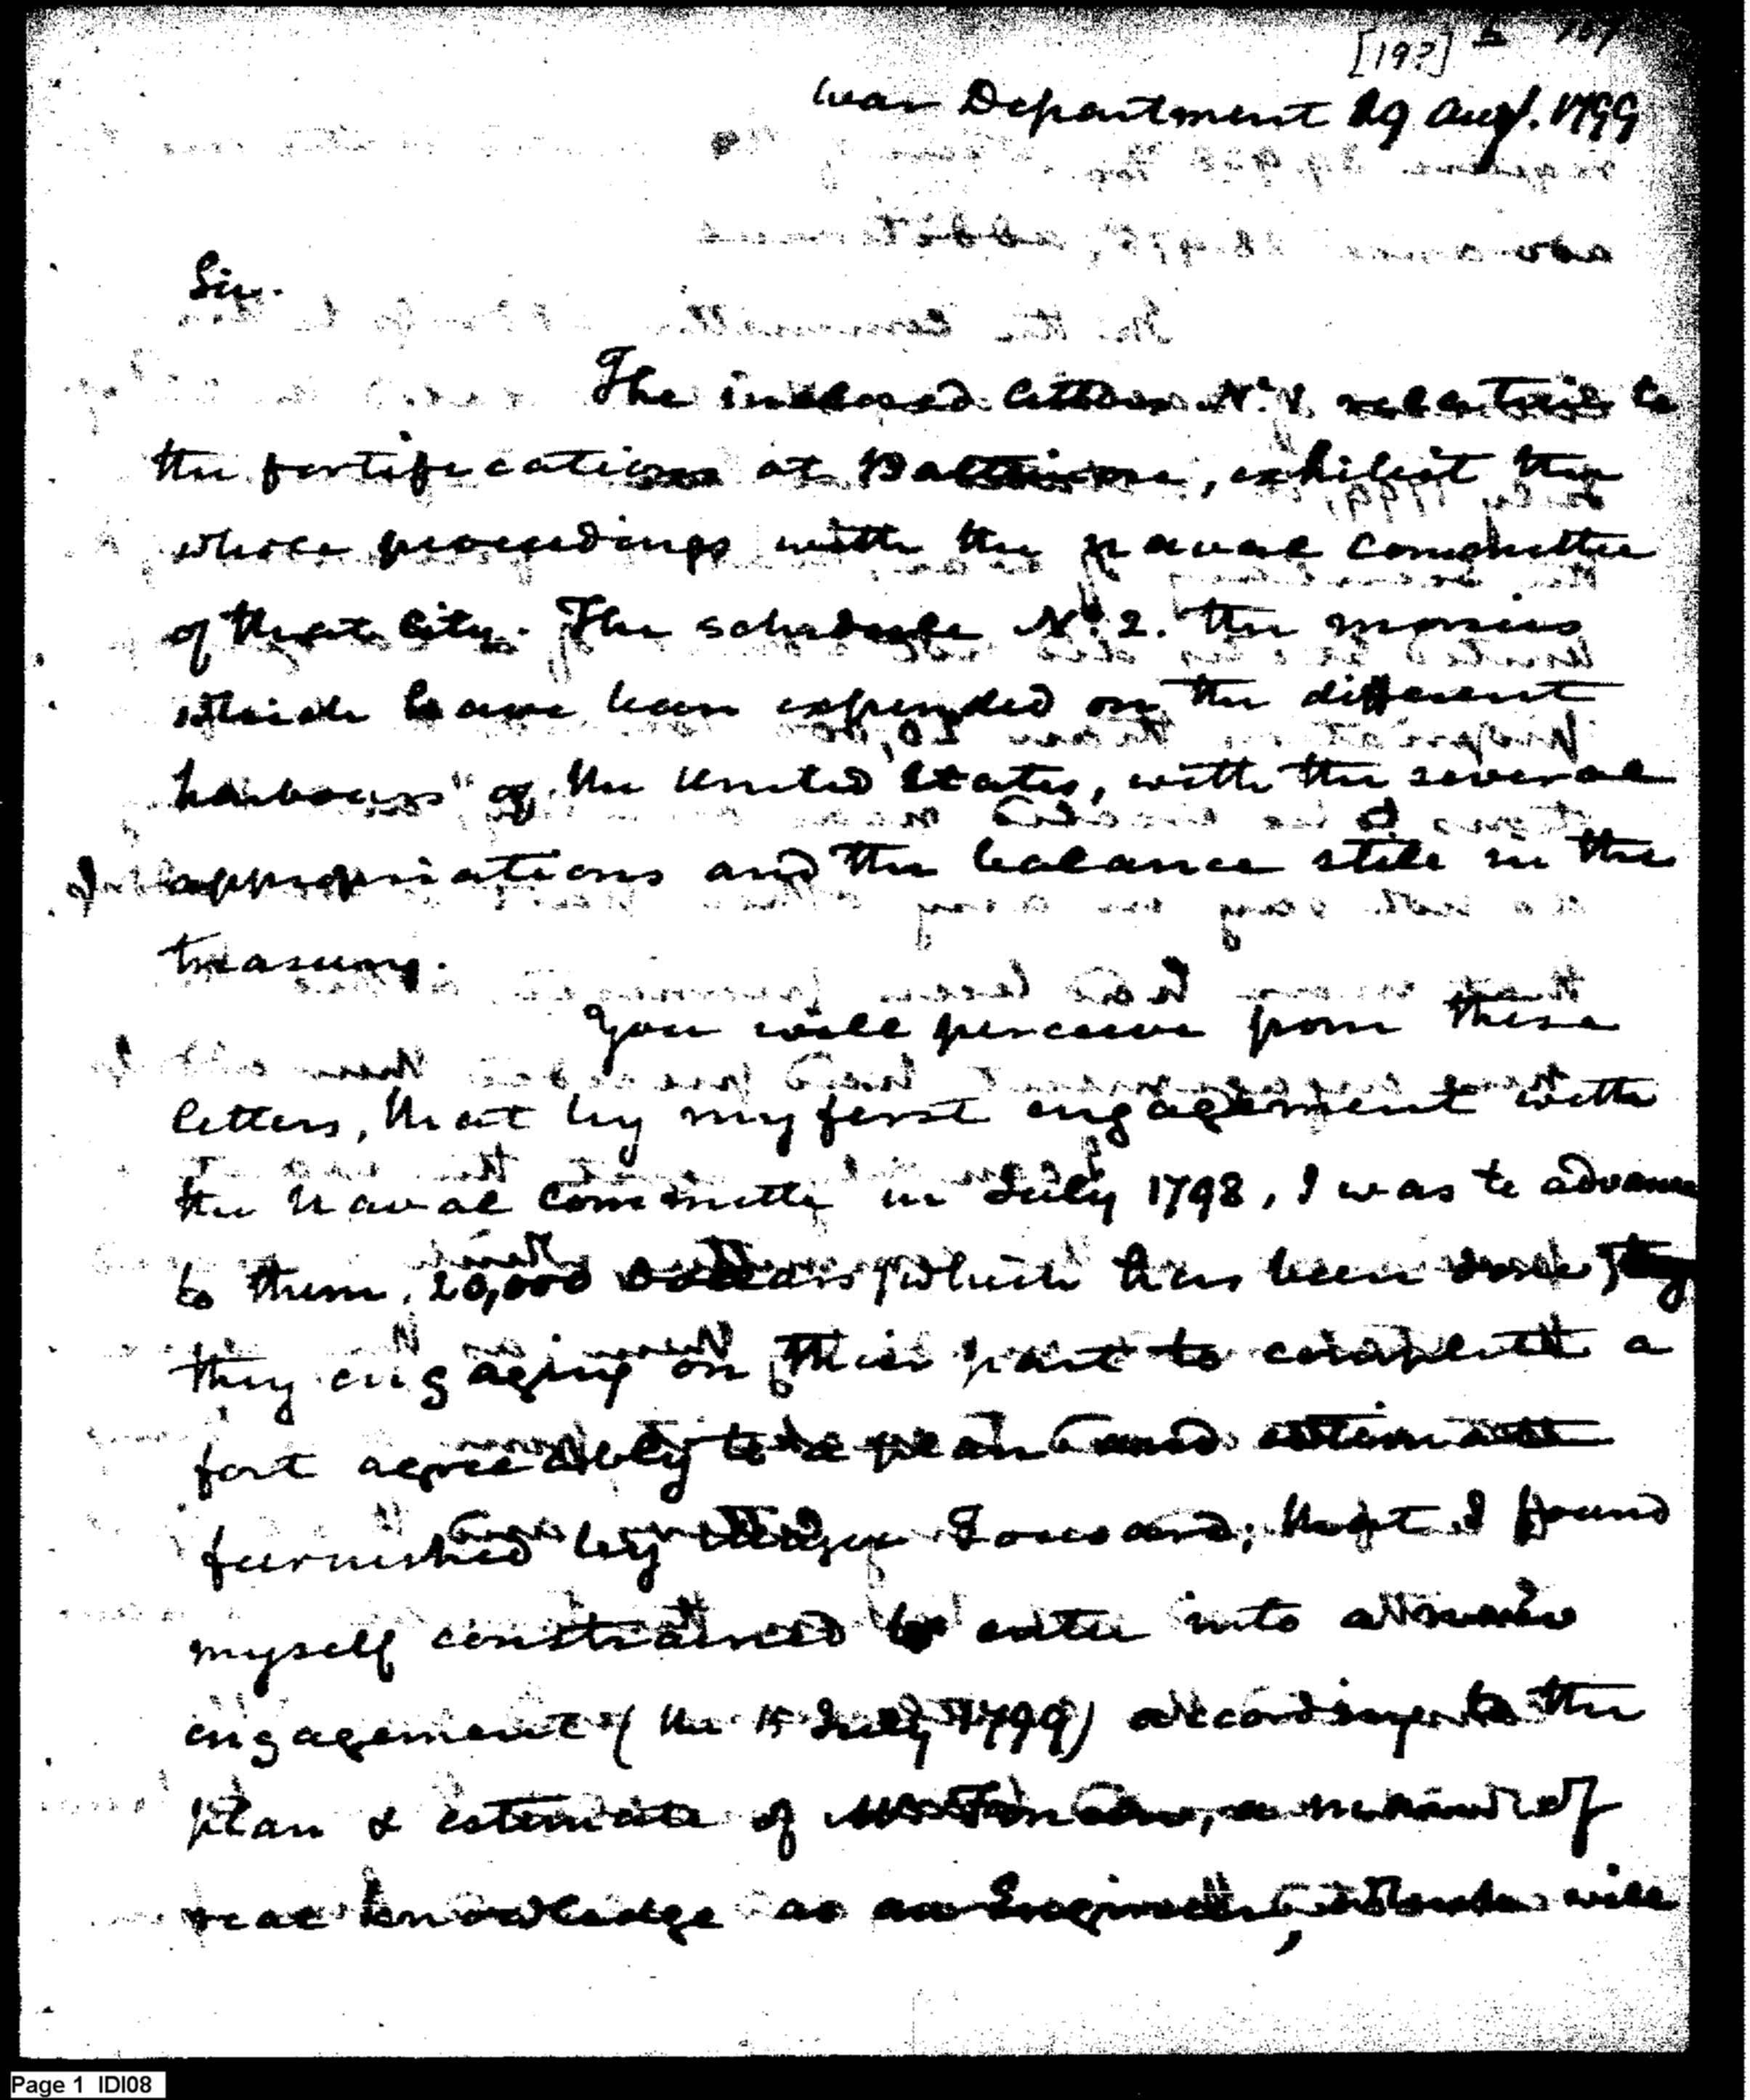 [19?]
War Department 29 Augt. 1799
Sir.
The inclosed letters No. 1. relative to
the fortifications at Baltimore, exhibit the
whole proceedings with the naval committee
of that City. The schedule No. 2. the monies
which have been expended on the different
harbours of the United States, with the several
appropriations and the balance still in the
treasury.
You will perceive from these
letters, that by my first engagement with
the naval committee in July 1798, I was to advance
to them, 20,000 dollars (which has been done)
they engaging on their part to complete a
fort agreeably to a plan and estimate
furnished by Major Tousard; that I found
myself constrained to enter into a new
engagement (the 15 July 1799) according to the
plan & estimate of Mr. Foncin, a man of
real knowledge as an Engineer, which will
Page 1 IDI08